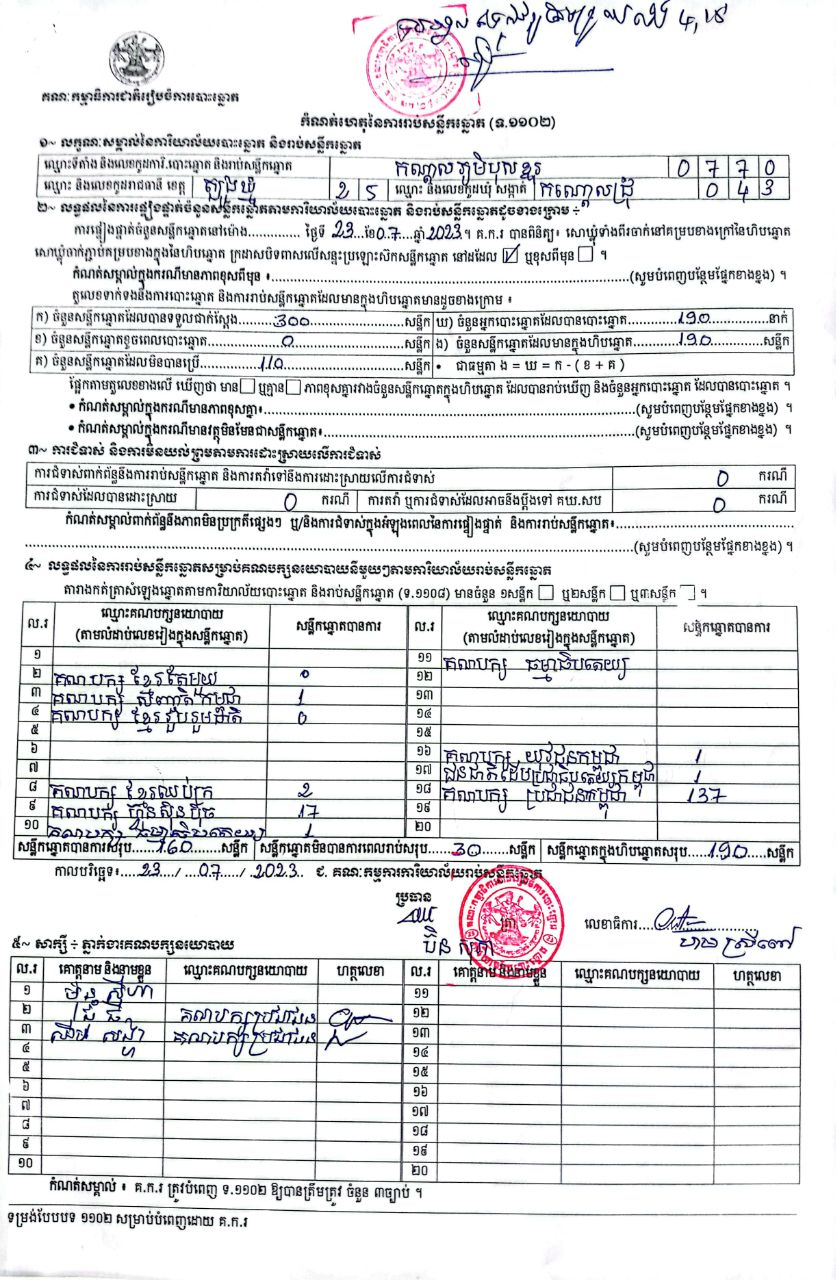 គណៈកម្មាធិការជាតិរៀបចំការបោះឆ្នោត
កំណត់ហេតុនៃការរាប់សន្លឹកឆ្នោត (ទ.១១០២)
១~ លក្ខណៈសម្គាល់នៃការិយាល័យបោះឆ្នោត និងរាប់សន្លឹកឆ្នោត
ឈ្មោះទីតាំង និងលេខកូដការិ.បោះឆ្នោត និងរាប់សន្លឹកឆ្នោត 0 7 7 0
ឈ្មោះ និងលេខកូដរាជធានី ខេត្ត ត្បូងឃ្មុំ 2 5 ឈ្មោះ និងលេខកូដឃុំ សង្កាត់ កណ្ដោលជ្រុំ 0 4 3
២~ លទ្ធផលនៃការផ្ទៀងផ្ទាត់ចំនួនសន្លឹកឆ្នោតតាមការិយាល័យបោះឆ្នោត និងរាប់សន្លឹកឆ្នោតដូចខាងក្រោម ÷
ការផ្ទៀងផ្ទាត់ចំនួនសន្លឹកឆ្នោតនៅម៉ោង............. ថ្ងៃទី 23 ខែ 07 ឆ្នាំ 2023 ។ គ.ក.រ បានពិនិត្យ៖ សោឃ្លុំទាំងពីរចាក់នៅគម្របខាងក្រៅនៃហិបឆ្នោត
សោឃ្លុំចាក់ភ្ជាប់គម្របខាងក្នុងនៃហិបឆ្នោត ក្រដាសបិទពាសលើសន្ទះប្រឡោះស៊កសន្លឹកឆ្នោត នៅដដែល ☑ ឬខុសពីមុន ☐ ។
កំណត់សម្គាល់ក្នុងករណីមានភាពខុសពីមុន ៖.............(សូមបំពេញបន្ថែមផ្នែកខាងខ្នង) ។
តួលេខទាក់ទងនឹងការបោះឆ្នោត និងការរាប់សន្លឹកឆ្នោតដែលមានក្នុងហិបឆ្នោតមានដូចខាងក្រោម ៖
ក) ចំនួនសន្លឹកឆ្នោតដែលបានទទួលជាក់ស្ដែង........300........សន្លឹក ឃ) ចំនួនអ្នកបោះឆ្នោតដែលបានបោះឆ្នោត........190........នាក់
ខ) ចំនួនសន្លឹកឆ្នោតខូចពេលបោះឆ្នោត........0........សន្លឹក ង) ចំនួនសន្លឹកឆ្នោតដែលមានក្នុងហិបឆ្នោត........190........សន្លឹក
គ) ចំនួនសន្លឹកឆ្នោតដែលមិនបានប្រើ........110........សន្លឹក • ជាធម្មតា ង = ឃ = ក - ( ខ + គ )
ផ្អែកតាមតួលេខខាងលើ ឃើញថា មាន ☐ ឬគ្មាន ☐ ភាពខុសគ្នារវាងចំនួនសន្លឹកឆ្នោតក្នុងហិបឆ្នោត ដែលបានរាប់ឃើញ និងចំនួនអ្នកបោះឆ្នោត ដែលបានបោះឆ្នោត ។
• កំណត់សម្គាល់ក្នុងករណីមានភាពខុសគ្នា៖.............(សូមបំពេញបន្ថែមផ្នែកខាងខ្នង) ។
• កំណត់សម្គាល់ក្នុងករណីមានវត្ថុមិនមែនជាសន្លឹកឆ្នោត៖.............(សូមបំពេញបន្ថែមផ្នែកខាងខ្នង) ។
៣~ ការជំទាស់ និងការមិនយល់ព្រមតាមការដោះស្រាយលើការជំទាស់
ការជំទាស់ពាក់ព័ន្ធនឹងការរាប់សន្លឹកឆ្នោត និងការតវ៉ាទៅនឹងការដោះស្រាយលើការជំទាស់ 0 ករណី
ការជំទាស់ដែលបានដោះស្រាយ 0 ករណី ការតវ៉ា ឬការជំទាស់ដែលអាចនឹងប្ដឹងទៅ គឃ.សប 0 ករណី
កំណត់សម្គាល់ពាក់ព័ន្ធនឹងភាពមិនប្រក្រតីផ្សេងៗ ឬ/និងការជំទាស់ក្នុងអំឡុងពេលនៃការផ្ទៀងផ្ទាត់ និងការរាប់សន្លឹកឆ្នោត៖.............
.............(សូមបំពេញបន្ថែមផ្នែកខាងខ្នង) ។
៤~ លទ្ធផលនៃការរាប់សន្លឹកឆ្នោតសម្រាប់គណបក្សនយោបាយនីមួយៗតាមការិយាល័យរាប់សន្លឹកឆ្នោត
តារាងកត់ត្រាសំឡេងឆ្នោតតាមការិយាល័យបោះឆ្នោត និងរាប់សន្លឹកឆ្នោត (ទ.១១០៨) មានចំនួន ១សន្លឹក ☐ ឬ២សន្លឹក ☐ ឬ៣សន្លឹក ☐ ។
ល.រ ឈ្មោះគណបក្សនយោបាយ (តាមលំដាប់លេខរៀងក្នុងសន្លឹកឆ្នោត) សន្លឹកឆ្នោតបានការ ល.រ ឈ្មោះគណបក្សនយោបាយ (តាមលំដាប់លេខរៀងក្នុងសន្លឹកឆ្នោត) សន្លឹកឆ្នោតបានការ
១ ១១ គណបក្ស ធម្មាធិបតេយ្យ
២ គណបក្ស ខ្មែរតែមួយ 0 ១២
៣ គណបក្ស សញ្ជាតិកម្ពុជា 1 ១៣
៤ គណបក្ស ខ្មែររួបរួមជាតិ 0 ១៤
៥ ១៥
៦ ១៦ គណបក្ស យុវជនកម្ពុជា 1
៧ ១៧ ជនជាតិដើមប្រជាធិបតេយ្យកម្ពុជា 1
៨ គណបក្ស ខ្មែរឈប់ក្រ 2 ១៨ គណបក្ស ប្រជាជនកម្ពុជា 137
៩ គណបក្ស ហ៊្វុនស៊ិនប៉ិច 17 ១៩
១០ 1 ២០
សន្លឹកឆ្នោតបានការសរុប 160 សន្លឹក សន្លឹកឆ្នោតមិនបានការពេលរាប់សរុប 30 សន្លឹក សន្លឹកឆ្នោតក្នុងហិបឆ្នោតសរុប 190 សន្លឹក
កាលបរិច្ឆេទ៖ 23 / 07 / 2023 ជ. គណៈកម្មការការិយាល័យរាប់សន្លឹកឆ្នោត
ប្រធាន
ត្រា លេខាធិការ
៥~ សាក្សី ÷ ភ្នាក់ងារគណបក្សនយោបាយ
ល.រ គោត្តនាម និងនាមខ្លួន ឈ្មោះគណបក្សនយោបាយ ហត្ថលេខា ល.រ គោត្តនាម និងនាមខ្លួន ឈ្មោះគណបក្សនយោបាយ ហត្ថលេខា
១ ១១
២ គណបក្សប្រជាជន ១២
៣ គណបក្សប្រជាជន ១៣
៤ ១៤
៥ ១៥
៦ ១៦
៧ ១៧
៨ ១៨
៩ ១៩
១០ ២០
កំណត់សម្គាល់ ៖ គ.ក.រ ត្រូវបំពេញ ទ.១១០២ ឱ្យបានត្រឹមត្រូវ ចំនួន ៣ច្បាប់ ។
ទម្រង់បែបបទ ១១០២ សម្រាប់បំពេញដោយ គ.ក.រ